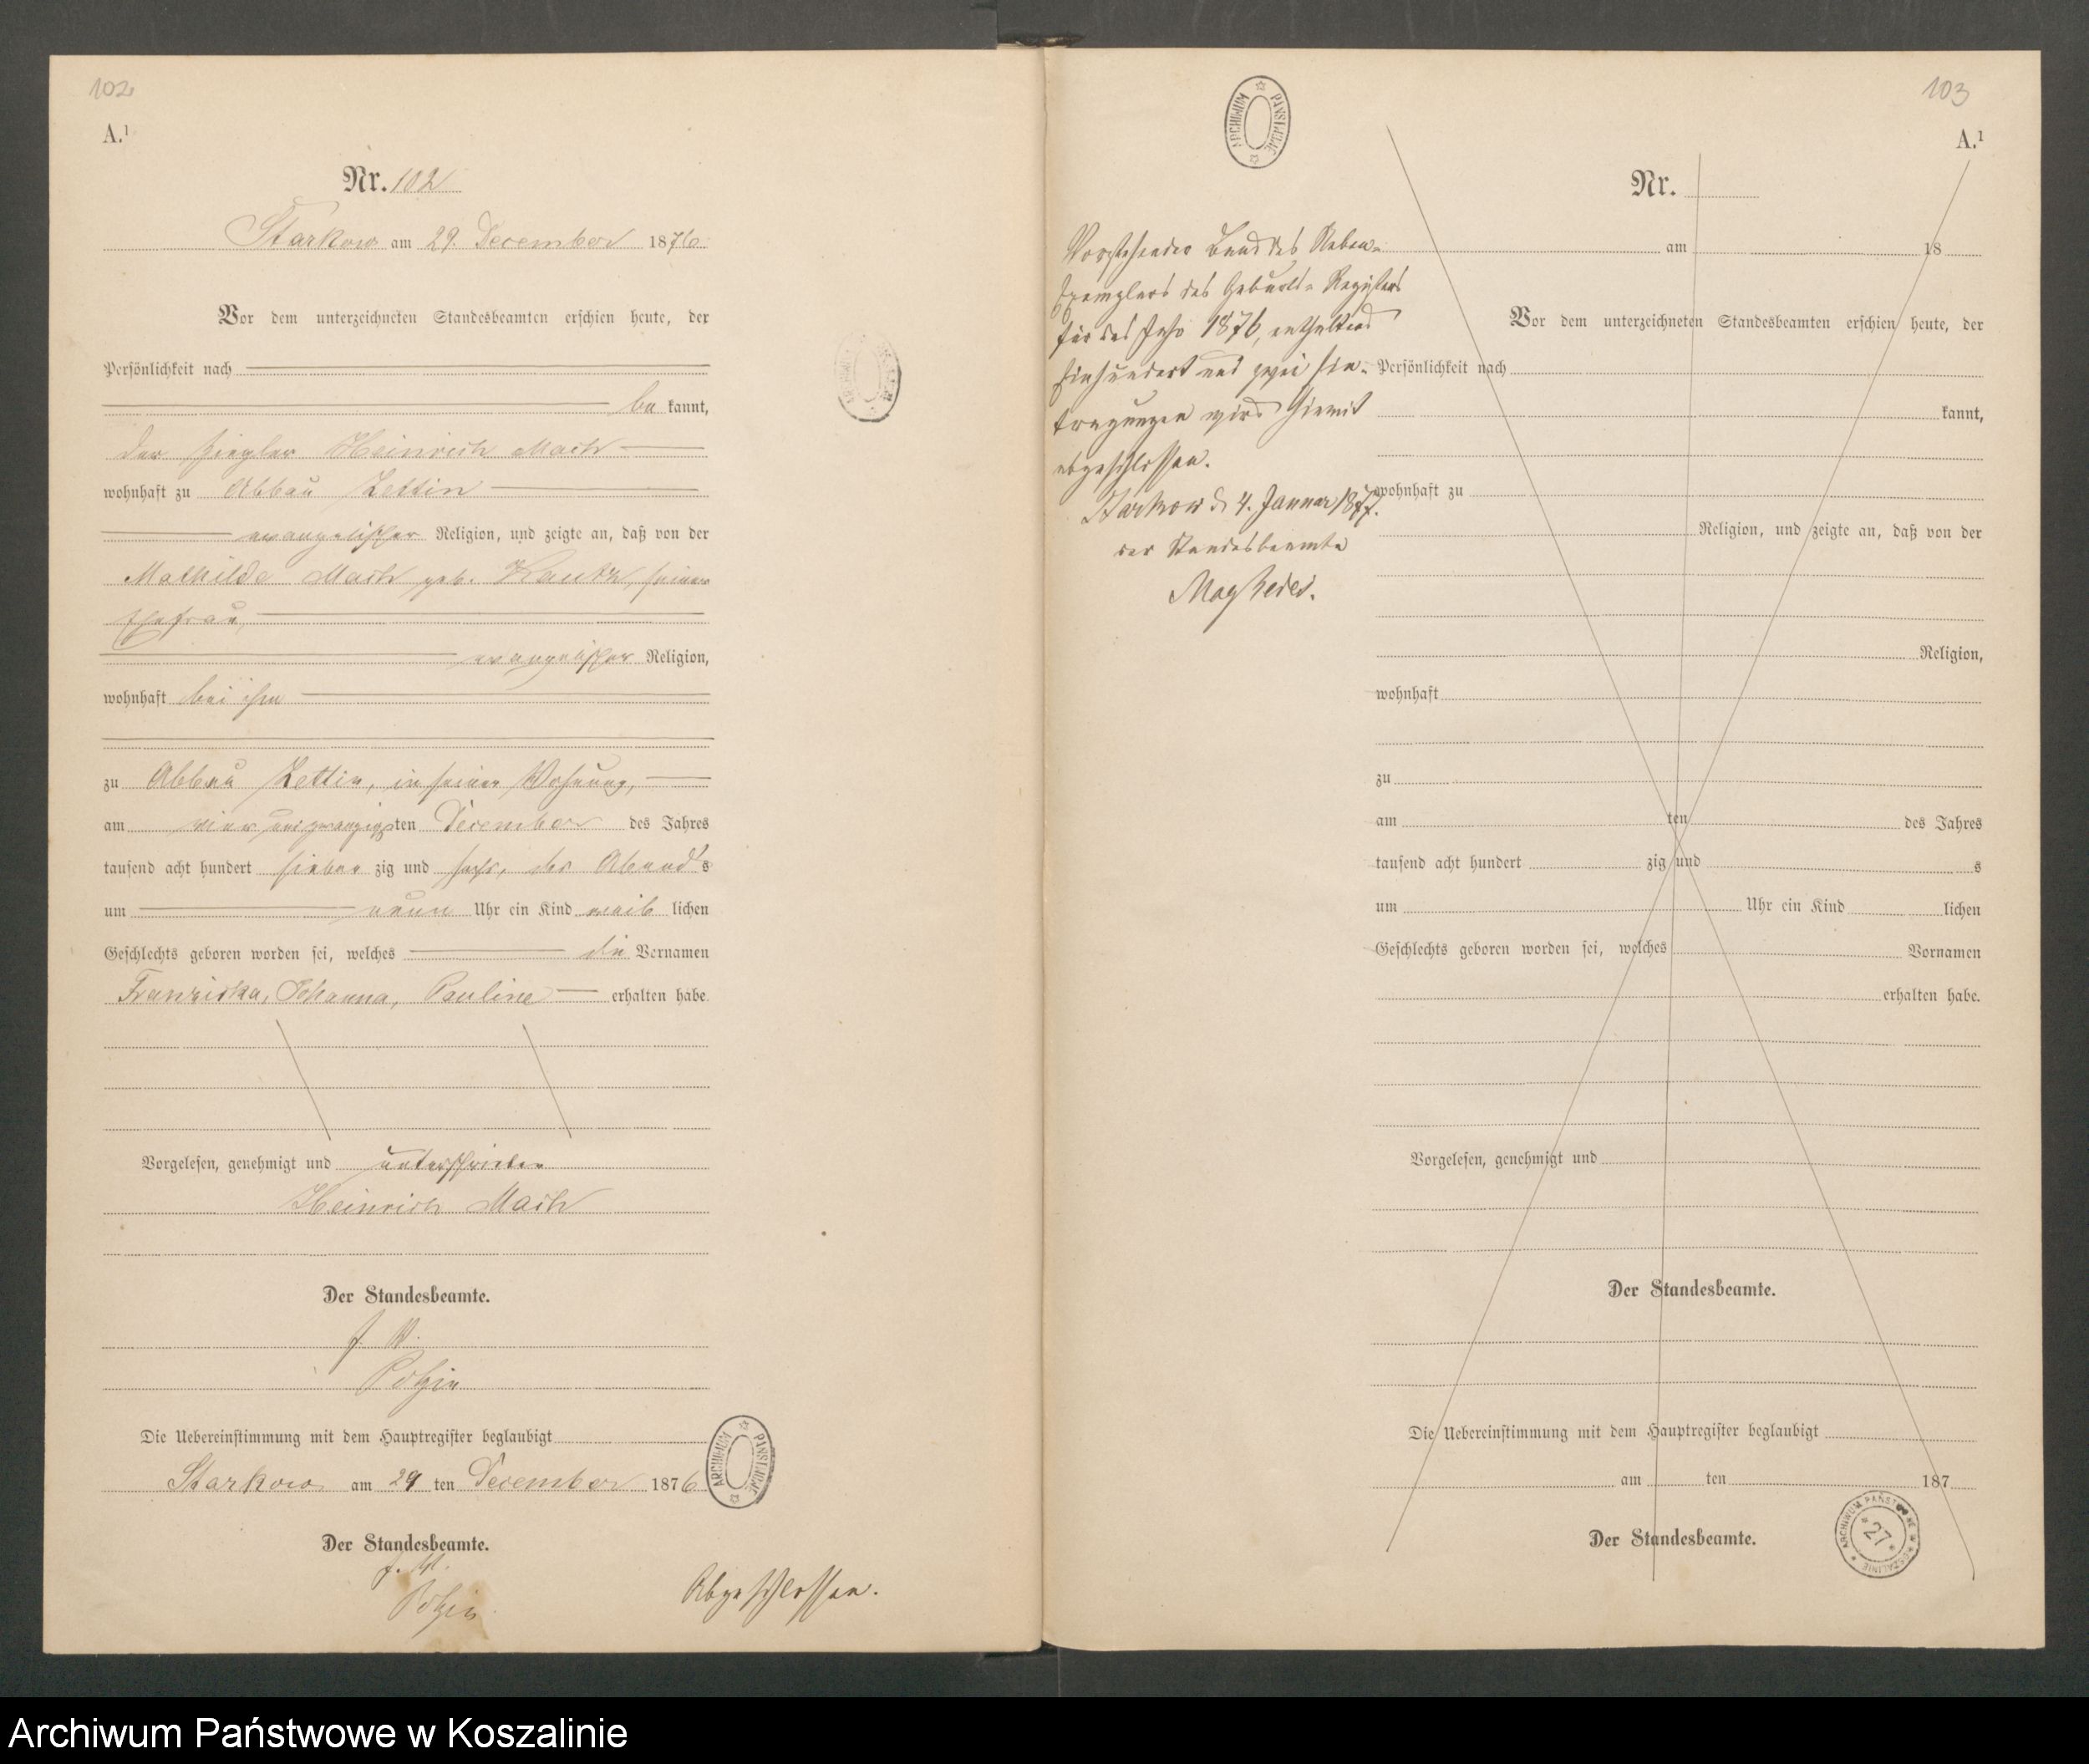 102
A.¹
Nr. 102
Starkow am 29. December 1876.
Vor dem unterzeichneten Standesbeamten erschien heute, der
Persönlichkeit nach
be kannt,
der Ziegler Heinrich Mach
wohnhaft zu Abbau Zettin
evangelischer Religion, und zeigte an, daß von der
Mathilde Mach geb. seiner
Ehefrau,
evangelischer Religion,
wohnhaft bei ihm
zu Abbau Zettin, in seiner Wohnung,
am vier und zwanzigsten December des Jahres
tausend acht hundert sieben zig und sechs, des Abends
um neun Uhr ein Kind weib lichen
Geschlechts geboren worden sei, welches die Vornamen
Franziska, Johanna, Pauline erhalten habe.
Vorgelesen, genehmigt und unterschrieben
Heinrich Mach
Der Standesbeamte.
J. V.
Die Uebereinstimmung mit dem Hauptregister beglaubigt
Starkow am 29 ten December 1876
Der Standesbeamte.
J. V.
Abgeschlossen.
ARCHIWUM PAŃSTWOWE
103
A.¹
Vorstehender Band des Neben-
Exemplars des Geburts-Registers
für das Jahr 1876, enthaltend
Einhundert und zwei Ein-
tragungen wird hiermit
abgeschlossen.
Starkow d. 4. Januar 1877.
der Standesbeamte
Nr.
am 18
Vor dem unterzeichneten Standesbeamten erschien heute, der
Persönlichkeit nach
kannt,
wohnhaft zu
Religion, und zeigte an, daß von der
Religion,
wohnhaft
zu
am ten des Jahres
tausend acht hundert zig und s
um Uhr ein Kind lichen
Geschlechts geboren worden sei, welches Vornamen
erhalten habe.
Vorgelesen, genehmigt und
Der Standesbeamte.
Die Uebereinstimmung mit dem Hauptregister beglaubigt
am ten 187
Der Standesbeamte.
ARCHIWUM PAŃSTWOWE W KOSZALINIE
27
Archiwum Państwowe w Koszalinie